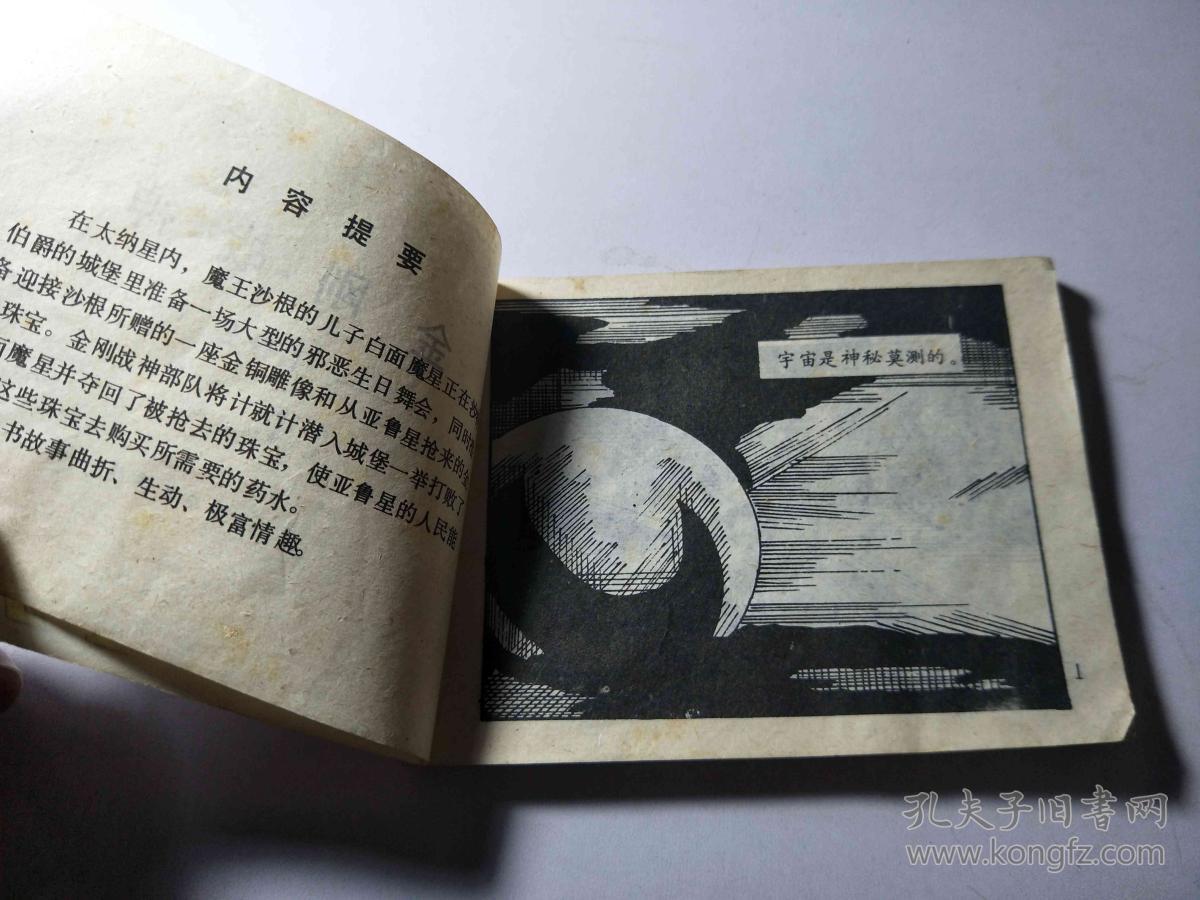 内容提要
在太纳星内，魔王沙根的儿子白面魔星正在沙
伯爵的城堡里准备一场大型的邪恶生日舞会，同时
备迎接沙根所赠的一座金铜雕像和从亚鲁星抢来的金
珠宝。金刚战神部队将计就计潜入城堡一举打败了
面魔星并夺回了被抢去的珠宝，使亚鲁星的人民能
这些珠宝去购买所需要的药水。
书故事曲折、生动、极富情趣。
宇宙是神秘莫测的。
1
孔夫子旧書网
www.kongfz.com